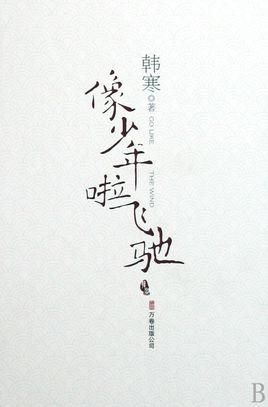 韩寒◎著
GO LIKE
THE WIND
像少年啦飞驰
万卷出版公司
B